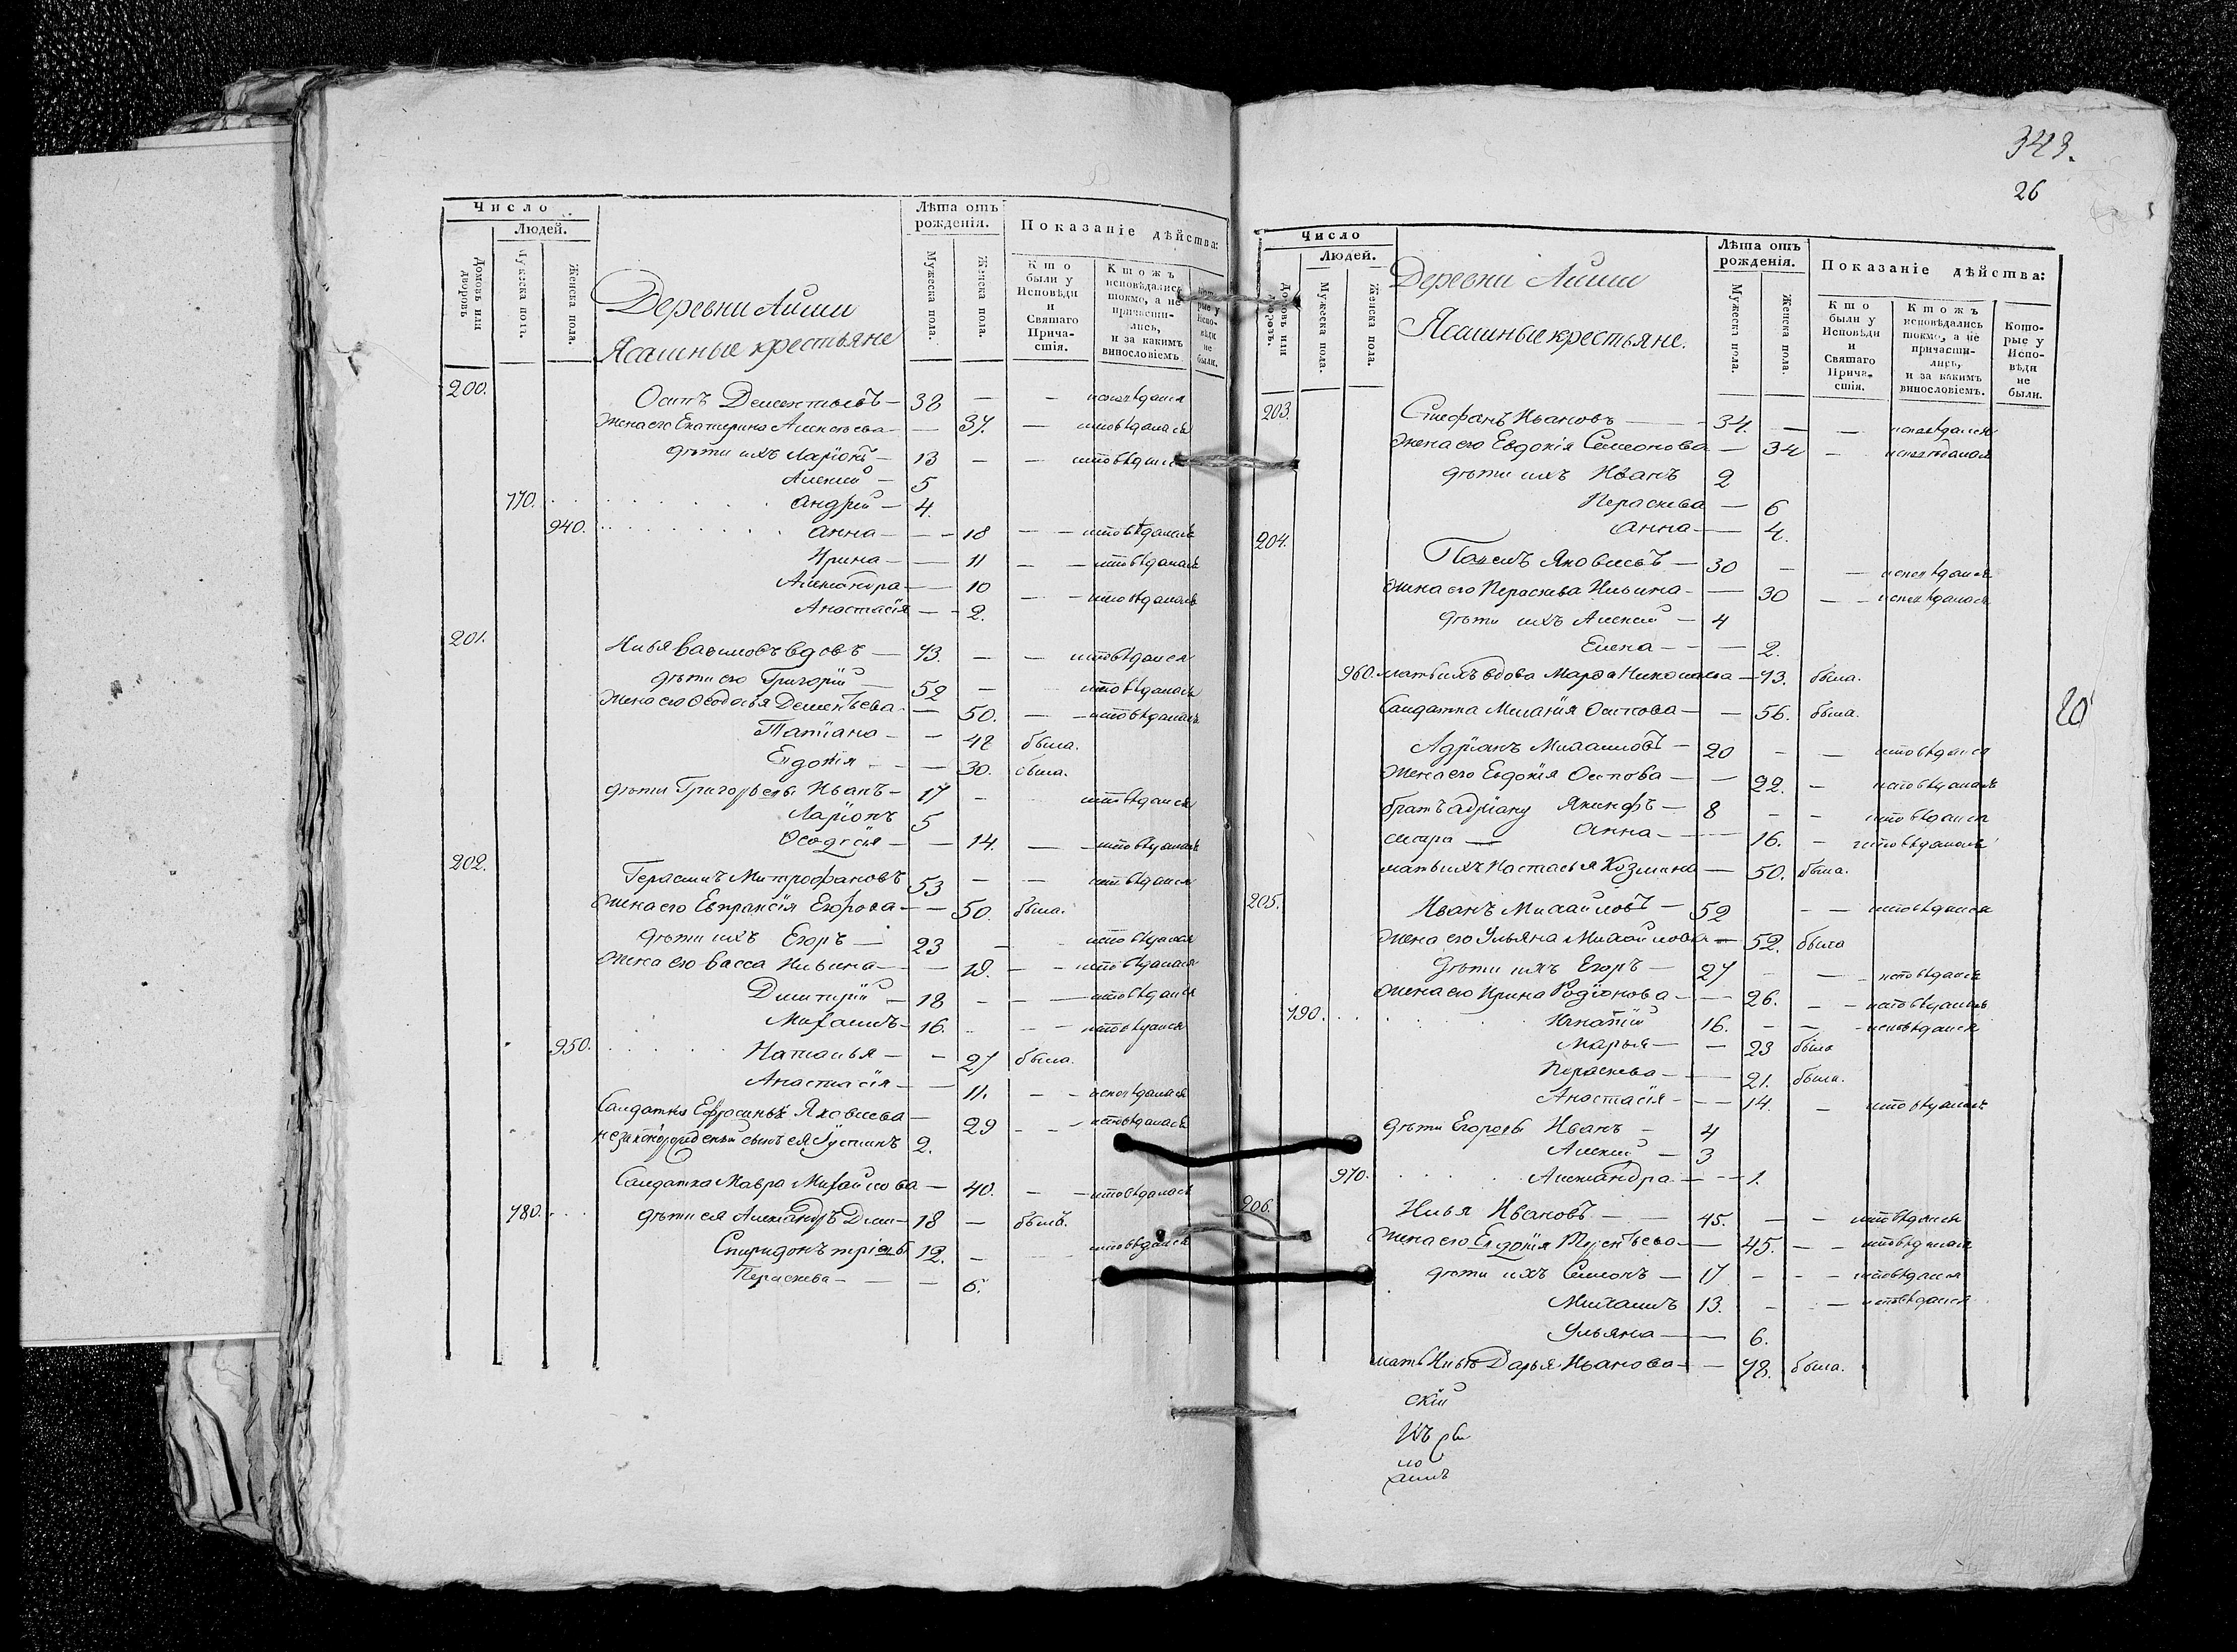 Число
Людей.
Домовъ или дворовъ
Мужеска пола.
Женска пола.
Деревни Айши
Ясашные крестьяне
Лѣта отъ рожденія.
Мужеска пола.
Женска пола.
Показаніе дѣйства:
Кто были у Исповѣди и Святаго Причастія.
Ктожъ исповѣдались токмо, а не причастились, и за какимъ винословіемъ
Которые у Исповѣди не были.
200. Осипъ Дементьевъ — 38 — — исповѣдался
Жена его Екатерина Алексѣева — — 37. — исповѣдалась
дѣти ихъ Ларіонъ — 13 — — исповѣдался
Алексѣй — 5
770. Андрей — 4.
940. Анна — — 18 — — исповѣдалась
Ирина — — 11 — — исповѣдалась
Александра — — 10 — — исповѣдалась
Анастасія — — 2.
201. Илья Васильевъ вдовъ — 73. — — исповѣдался
дѣти его Григорій — 52 — — исповѣдался
Жена его Ѳеодосья Дементьева — — 50. — — исповѣдалась
Татіана — — 42 была.
Евдокія — — 30. была.
дѣти Григорьевы Иванъ — 17 — исповѣдался
Ларіонъ 5
Ѳеодосія — — 14. — — исповѣдалась
202. Герасимъ Митрофановъ 53 — — исповѣдался
Жена его Евпраксія Егорова — — 50. была.
дѣти ихъ Егоръ — 23 — — исповѣдался
Жена его Васса Ильина — — 19. — — исповѣдалась
Дмитрій — 18 — — — исповѣдался
Михаилъ — 16. — — исповѣдался
950. Наталья — — 27 была.
Анастасія — — 11. — — исповѣдалась
Салдатка Ефросинья Яковлева — 29 — — исповѣдалась
незаконорожденный сынъ ея Іустинъ 2.
Салдатка Мавра Михайлова — 40. — — исповѣдалась
780. дѣти ея Александръ Дми- 18 — былъ.
Спиридонъ тріевы 12. — — исповѣдался
Пераскева — — — 6.
343.
26
Число
Людей.
Домовъ или дворовъ.
Мужеска пола.
Женска пола.
Деревни Айши
Ясашные крестьяне.
Лѣта отъ рожденія.
Мужеска пола.
Женска пола.
Показаніе дѣйства:
Кто были у Исповѣди и Святаго Причастія.
Ктожъ исповѣдались токмо, а не причастились, и за какимъ винословіемъ.
Которые у Исповѣди не были.
203 Стефанъ Ивановъ — — 34. — — исповѣдался
Жена его Евдокія Семонова — 34 — исповѣдалась
дѣти ихъ Иванъ 2
Пераскева — 6
Анна — — 4.
204. Павелъ Яковлевъ — 30 — — исповѣдался
Жена его Пераскева Ильина — — 30 — — исповѣдалась
дѣти ихъ Алексѣй — 4
Елена — — — 2.
960. мать ихъ вдова Марѳа Николаева — 73. была.
Салдатка Миланія Осипова — — 56. была.
Адріанъ Михайловъ — 20 — — исповѣдался
Жена его Евдокія Осипова — — 22. — исповѣдалась
братъ Адріану Якинфъ — 8 — — исповѣдался
сестра — Анна — — 16. — исповѣдалась
мать ихъ Настасья Козмина — 50. была.
20
205. Иванъ Михайловъ — 52 — — исповѣдался
Жена его Ульяна Михайлова — 52. была
Дѣти ихъ Егоръ — 27 — — исповѣдался
Жена его Ирина Родіонова — — 26. — — исповѣдалась
790. Игнатій 16. — — исповѣдался
Марья — — 23 была
Пераскева — — 21. была.
Анастасія — — 14. — исповѣдалась
дѣти Егоровы Иванъ — 4
Алексѣй — 3
970. Александра — — 1.
206. Илья Ивановъ — — 45. — — исповѣдался
Жена его Евдокія Терентьева — — 45. — — исповѣдалась
дѣти ихъ Семонъ — 17 — — — исповѣдался
Михаилъ 13. — — исповѣдался
Ульяна — — 6.
мать Ильѣ Дарья Иванова — — 78. была.
скій